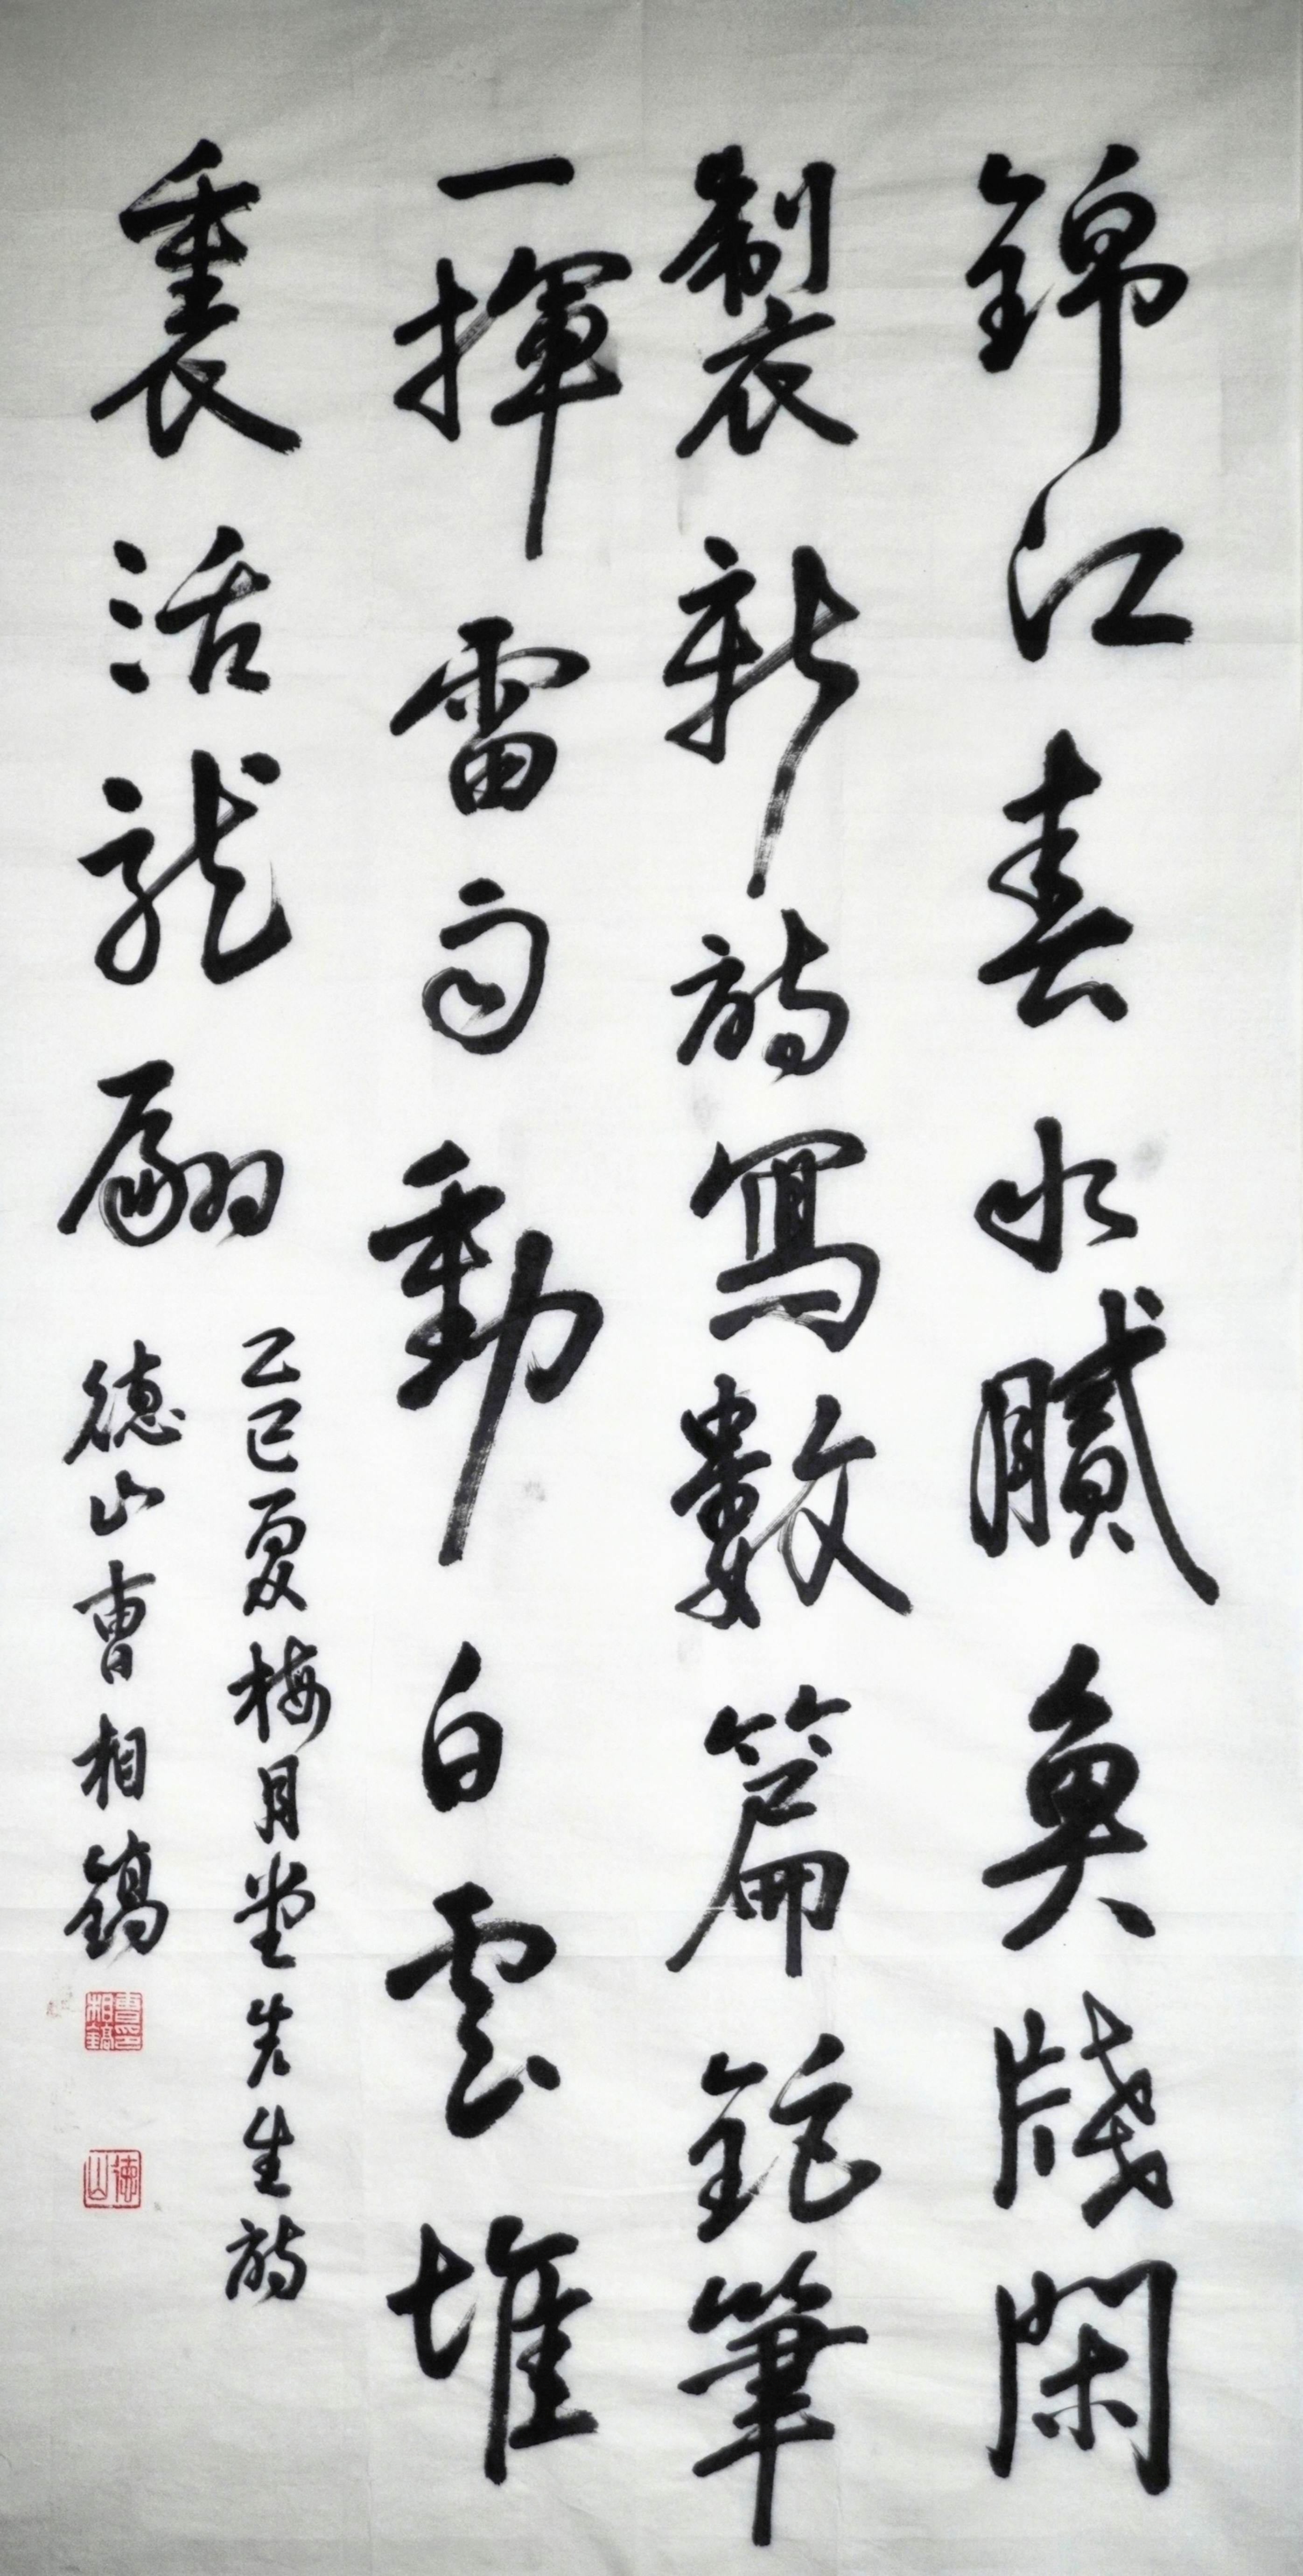 錦江春水膩魚牋閑
製新詩寫數篇鉅筆
一揮雷雨動白雲堆
裏活龍翩
乙巳夏梅月堂先生詩
德山曹相鎬
曹印相鎬
德山